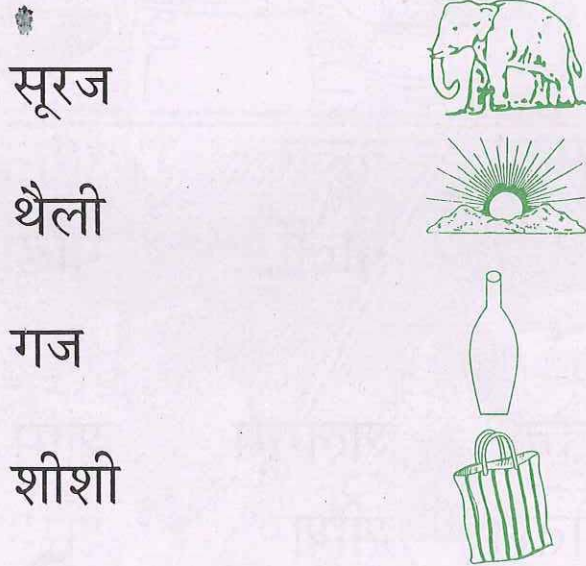 सूरज
थैली
गज
शीशी